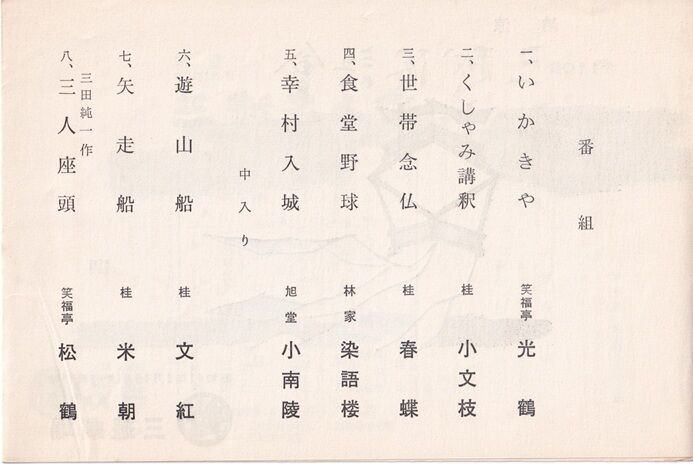 番組
一、いかきや 笑福亭 光鶴
二、くしゃみ講釈 桂 小文枝
三、世帯念仏 桂 春蝶
四、食堂野球 林家 染語楼
五、幸村入城 旭堂 小南陵
中入り
六、遊山船 桂 文紅
七、矢走船 桂 米朝
三田純一作
八、三人座頭 笑福亭 松鶴